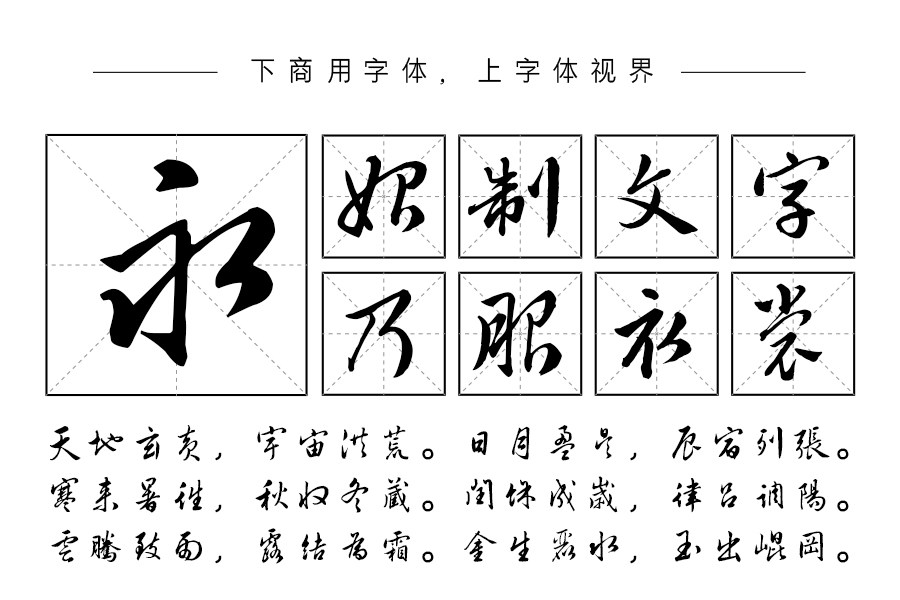 下商用字体，上字体视界
永
始制文字
乃服衣裳
天地玄黄，宇宙洪荒。日月盈昃，辰宿列張。
寒来暑往，秋收冬藏。閏餘成歲，律吕调陽。
雲騰致雨，露结為霜。金生麗水，玉出崐岡。